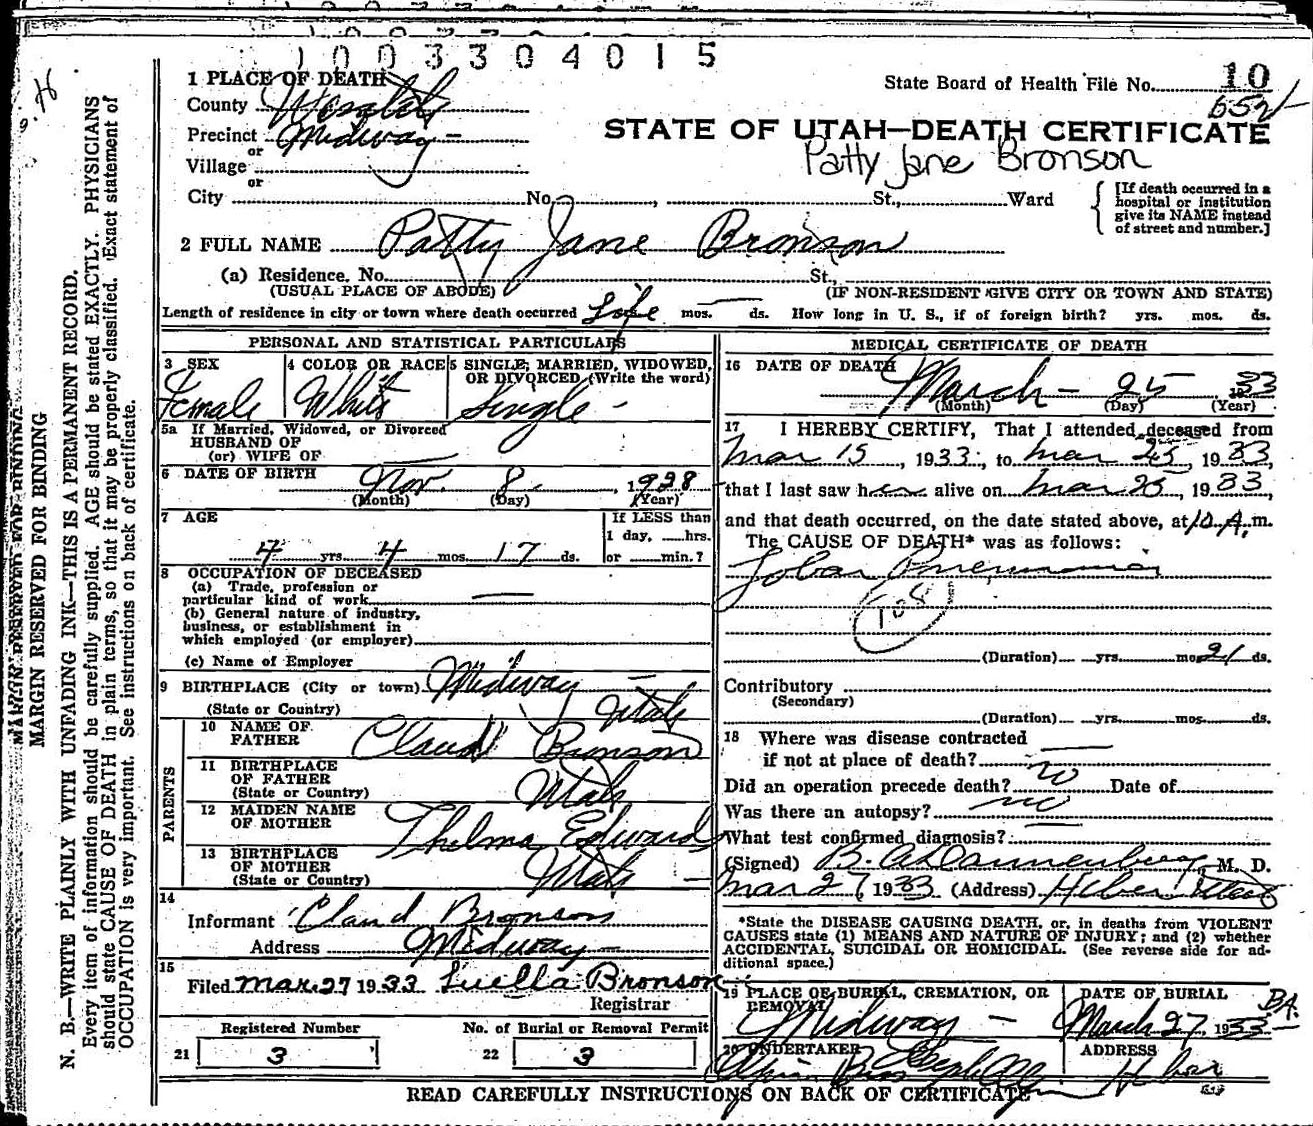 1003304015
1 PLACE OF DEATH
State Board of Health File No. 10
County Wasatch
652
Precinct Midway
or
STATE OF UTAH—DEATH CERTIFICATE
Patty Jane Bronson
Village
or
City No. , St., Ward
[If death occurred in a
hospital or institution
give its NAME instead
of street and number.]
2 FULL NAME Patty Jane Bronson
(a) Residence. No. St.,
(USUAL PLACE OF ABODE) (IF NON-RESIDENT GIVE CITY OR TOWN AND STATE)
Length of residence in city or town where death occurred Life mos. — ds. How long in U. S., if of foreign birth? yrs. mos. ds.
PERSONAL AND STATISTICAL PARTICULARS
3 SEX
Female
4 COLOR OR RACE
White
5 SINGLE, MARRIED, WIDOWED,
OR DIVORCED (Write the word)
Single -
5a If Married, Widowed, or Divorced
HUSBAND OF
(or) WIFE OF —
6 DATE OF BIRTH Nov. 8, 1928
(Month) (Day) (Year)
7 AGE
4 yrs. 4 mos. 17 ds.
If LESS than
1 day, hrs.
or min.?
8 OCCUPATION OF DECEASED
(a) Trade, profession or
particular kind of work —
(b) General nature of industry,
business, or establishment in
which employed (or employer)
(c) Name of Employer
9 BIRTHPLACE (City or town) Midway —
(State or Country) Utah
PARENTS
10 NAME OF
FATHER Claud Bronson
11 BIRTHPLACE
OF FATHER
(State or Country) Utah
12 MAIDEN NAME
OF MOTHER Thelma Edwards
13 BIRTHPLACE
OF MOTHER
(State or Country) Utah —
14
Informant Claud Bronson
Address Midway —
15
Filed Mar. 27 1933 Luella Bronson
Registrar
Registered Number No. of Burial or Removal Permit
21 3 22 3
MEDICAL CERTIFICATE OF DEATH
16 DATE OF DEATH
March — 25 1933
(Month) (Day) (Year)
17 I HEREBY CERTIFY, That I attended deceased from
Mar 15, 1933, to Mar 25, 1933,
that I last saw her alive on Mar 25, 1933,
and that death occurred, on the date stated above, at 10 A. m.
The CAUSE OF DEATH* was as follows:
Lobar Pneumonia
108
(Duration) yrs. mos. 21 ds.
Contributory
(Secondary)
(Duration) yrs. mos. ds.
18 Where was disease contracted
if not at place of death? —
Did an operation precede death? no Date of
Was there an autopsy? no
What test confirmed diagnosis? —
(Signed) B. A. Dannenberg, M. D.
Mar 27 1933 (Address) Heber Utah
*State the DISEASE CAUSING DEATH, or, in deaths from VIOLENT
CAUSES state (1) MEANS AND NATURE OF INJURY; and (2) whether
ACCIDENTAL, SUICIDAL OR HOMICIDAL. (See reverse side for ad-
ditional space.)
19 PLACE OF BURIAL, CREMATION, OR
REMOVAL
Midway —
DATE OF BURIAL
March 27, 1933
BA.
20 UNDERTAKER
ADDRESS
Heber
READ CAREFULLY INSTRUCTIONS ON BACK OF CERTIFICATE
MARGIN RESERVED FOR BINDING
N. B.—WRITE PLAINLY WITH UNFADING INK—THIS IS A PERMANENT RECORD.
Every item of information should be carefully supplied. AGE should be stated EXACTLY. PHYSICIANS
should state CAUSE OF DEATH in plain terms, so that it may be properly classified. Exact statement of
OCCUPATION is very important. See instructions on back of certificate.